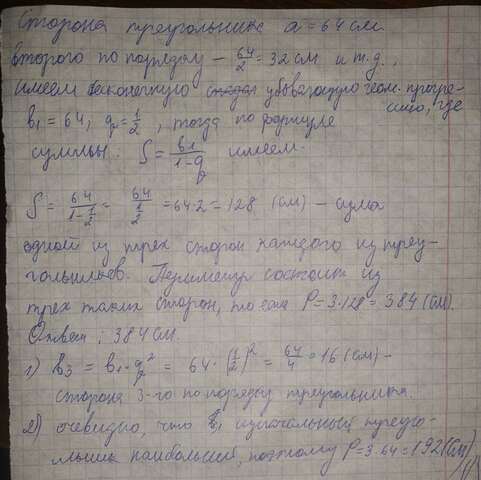 Сторона треугольника a = 64 см.
Второго по порядку – 64/2 = 32 см и т.д.,
имеем бесконечную убывающую геом. прогре-
ссию, где
b1 = 64; q = 1/2, тогда по формуле
суммы: S = b1/1-q имеем.
S = 64/1-1/2 = 64/1/2 = 64·2 = 128 (см) –
одной из трех сторон каждого из треу-
гольников. Периметр состоит из
трех таких сторон, то есть P = 3·128 = 384 (см).
Ответ: 384 см.
1) b3 = b1·q² = 64·(1/2)² = 64/4 = 16 (см) –
сторона 3-го по порядку треугольника.
2) очевидно, что изначальный треуго-
льник наибольший, поэтому P = 3·64 = 192 (см)